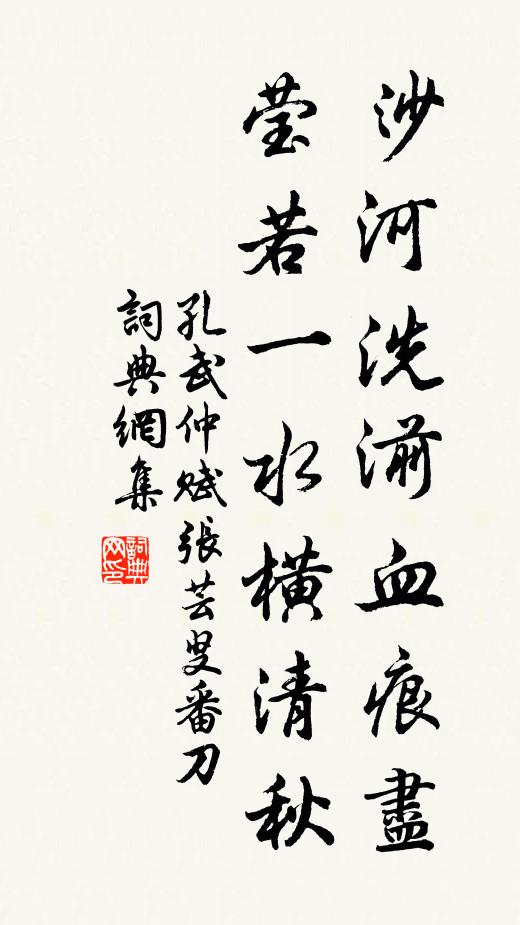 沙河洗湔血痕盡
莹若一水橫清秋
孔武仲賦張芸叟番刀
詞典網集
詞典网印